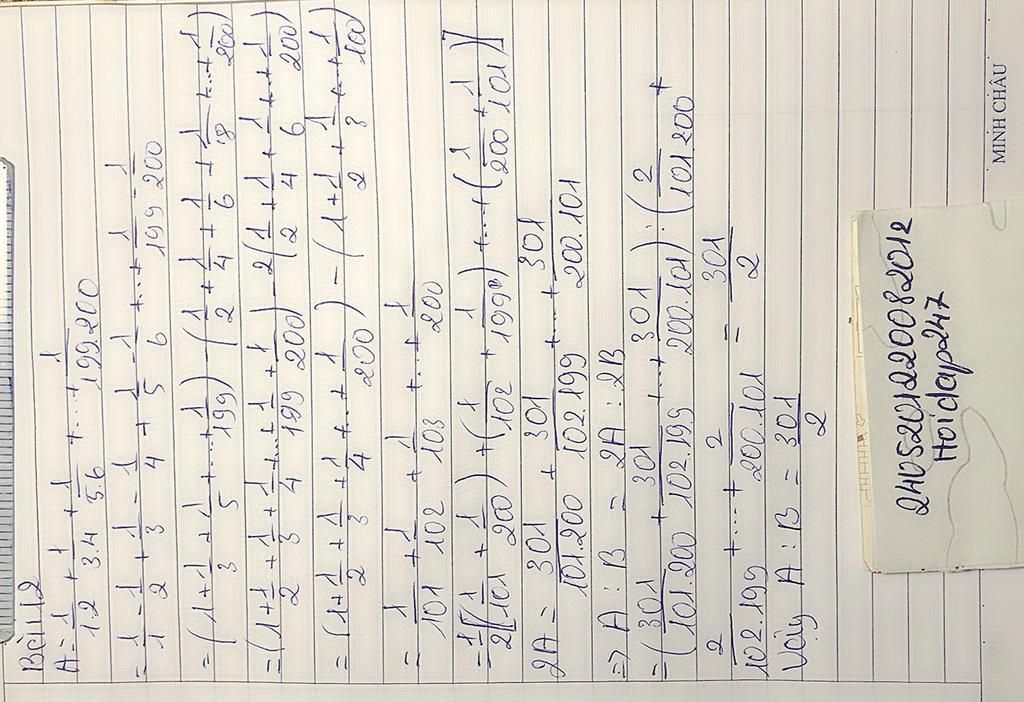 Bài 12
A = 1/1.2 + 1/3.4 + 1/5.6 + ... + 1/199.200
= 1/1 - 1/2 + 1/3 - 1/4 + 1/5 - 1/6 + ... + 1/199 - 1/200
= (1 + 1/3 + 1/5 + ... + 1/199) - (1/2 + 1/4 + 1/6 + 1/8 + ... + 1/200)
= (1 + 1/2 + 1/3 + 1/4 + ... + 1/199 + 1/200) - 2(1/2 + 1/4 + 1/6 + ... + 1/200)
= (1 + 1/2 + 1/3 + 1/4 + ... + 1/200) - (1 + 1/2 + 1/3 + ... + 1/100)
= 1/101 + 1/102 + 1/103 + ... + 1/200
= 1/2[(1/101 + 1/200) + (1/102 + 1/199) + ... + (1/200 + 1/101)]
2A = 301/101.200 + 301/102.199 + ... + 301/200.101
=> A : B = 2A : 2B
= (301/101.200 + 301/102.199 + ... + 301/200.101) : (2/101.200 +
2/102.199 + .... + 2/200.101 = 301/2
Vậy A : B = 301/2
MINH CHÂU
2405201220082012
Hoidap247